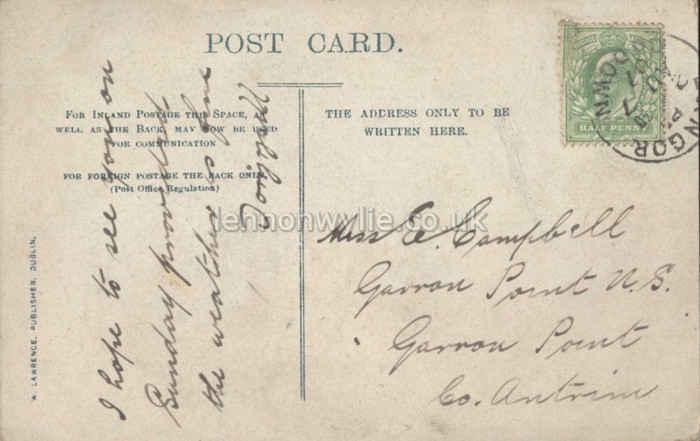 POST CARD.
FOR INLAND POSTAGE THIS SPACE, AS
WELL AS THE BACK, MAY NOW BE USED
FOR COMMUNICATION
FOR FOREIGN POSTAGE THE BACK ONLY
(Post Office Regulation)
THE ADDRESS ONLY TO BE
WRITTEN HERE.
HALF PENNY
I hope to see you on
Sunday provided
the weather is fine
Miss E. Campbell
Garron Point N.S.
Garron Point
Co. Antrim
W. LAWRENCE, PUBLISHER, DUBLIN.
lennonwylie.co.uk